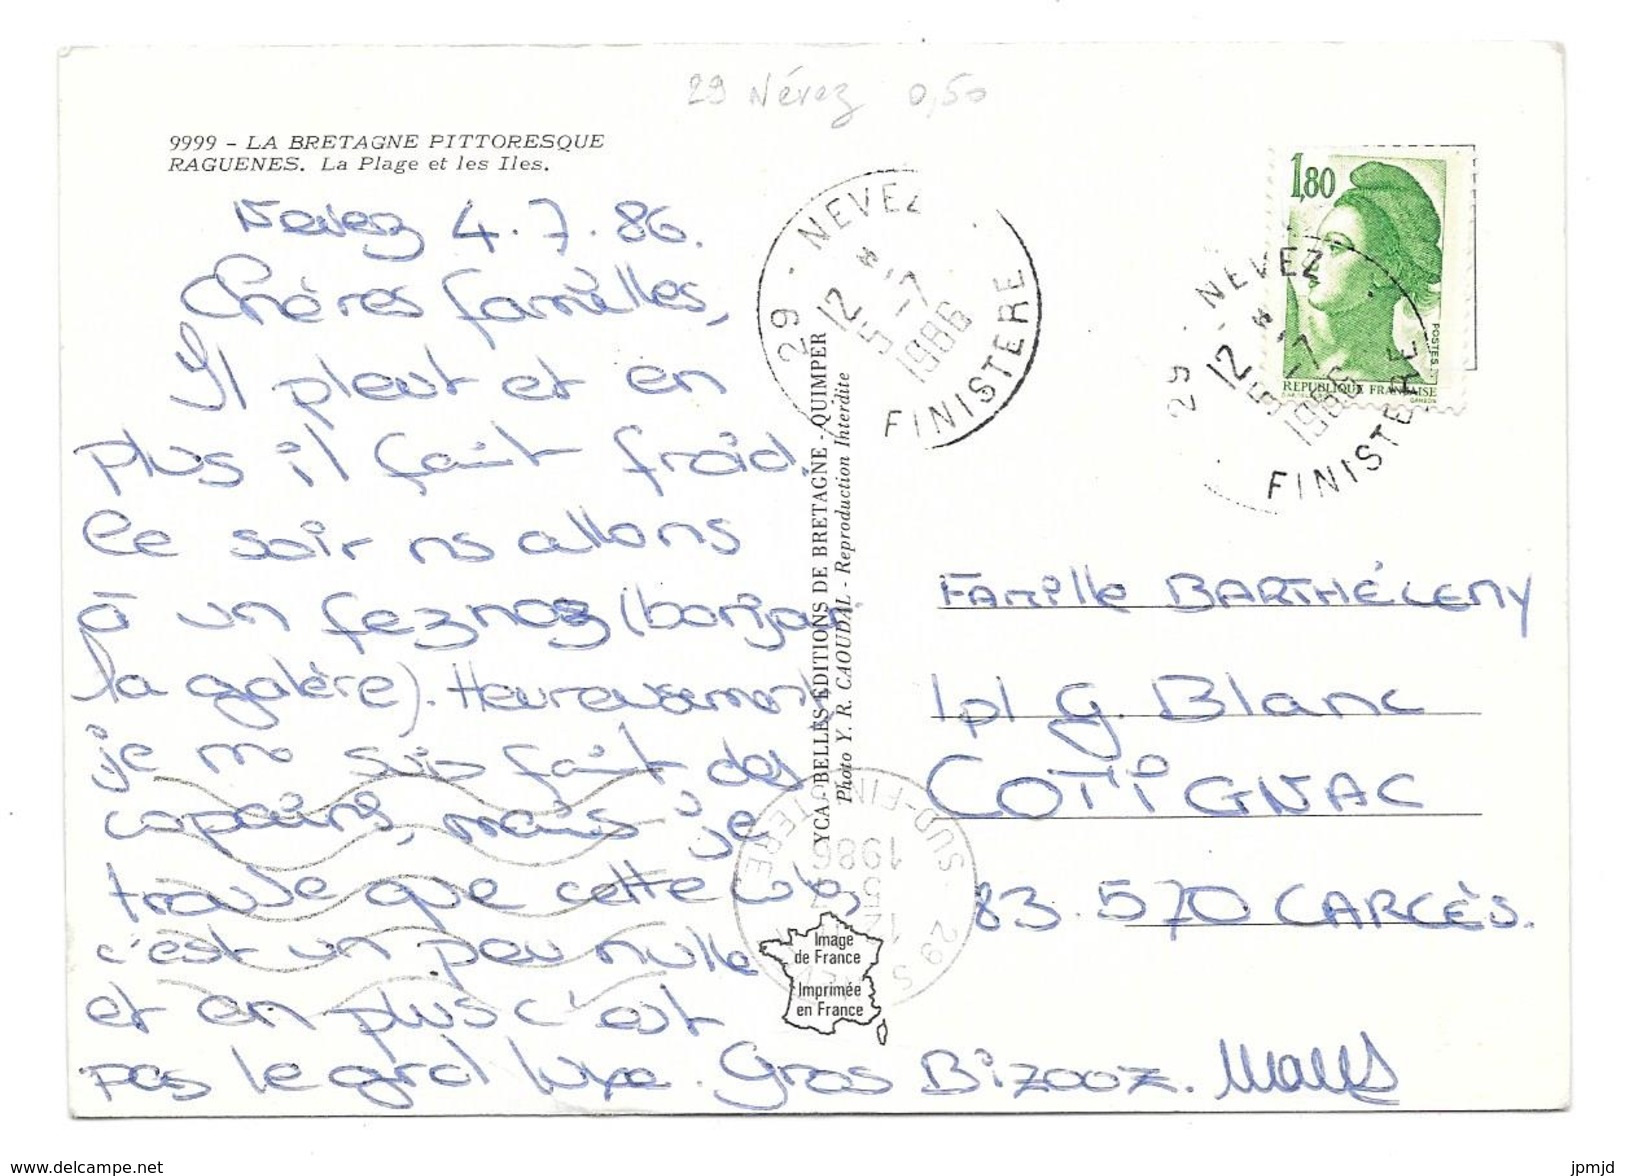 29 Névez 0,50
9999 - LA BRETAGNE PITTORESQUE
RAGUENES. La Plage et les Iles.
Nevez 4.7.86.
Chères familles,
Il pleut et en
plus il fait froid.
Ce soir ns allons
à un feznoz (bonjour
la galère). Heureusement
je me suis fait des
copains, mais je
trouve que cette
c'est un peu nulle
et en plus c'est
pas le grd luxe. Gros Bizooz.
YCA-BELLES EDITIONS DE BRETAGNE - QUIMPER
Photo Y. R. CAOUDAL - Reproduction Interdite
29 - NEVEZ
12 *
5 - 7
1986
FINISTERE
1,80
POSTES
REPUBLIQUE FRANÇAISE
GANDON
29 - NEVEZ
12 *
5 - 7
1986
FINISTERE
Famille BARTHÉLEMY
1 pl G. Blanc
COTIGNAC
83.570 CARCÈS.
29 SUD-FINISTERE
1986
Image
de France
Imprimée
en France
www.delcampe.net
jpmjd